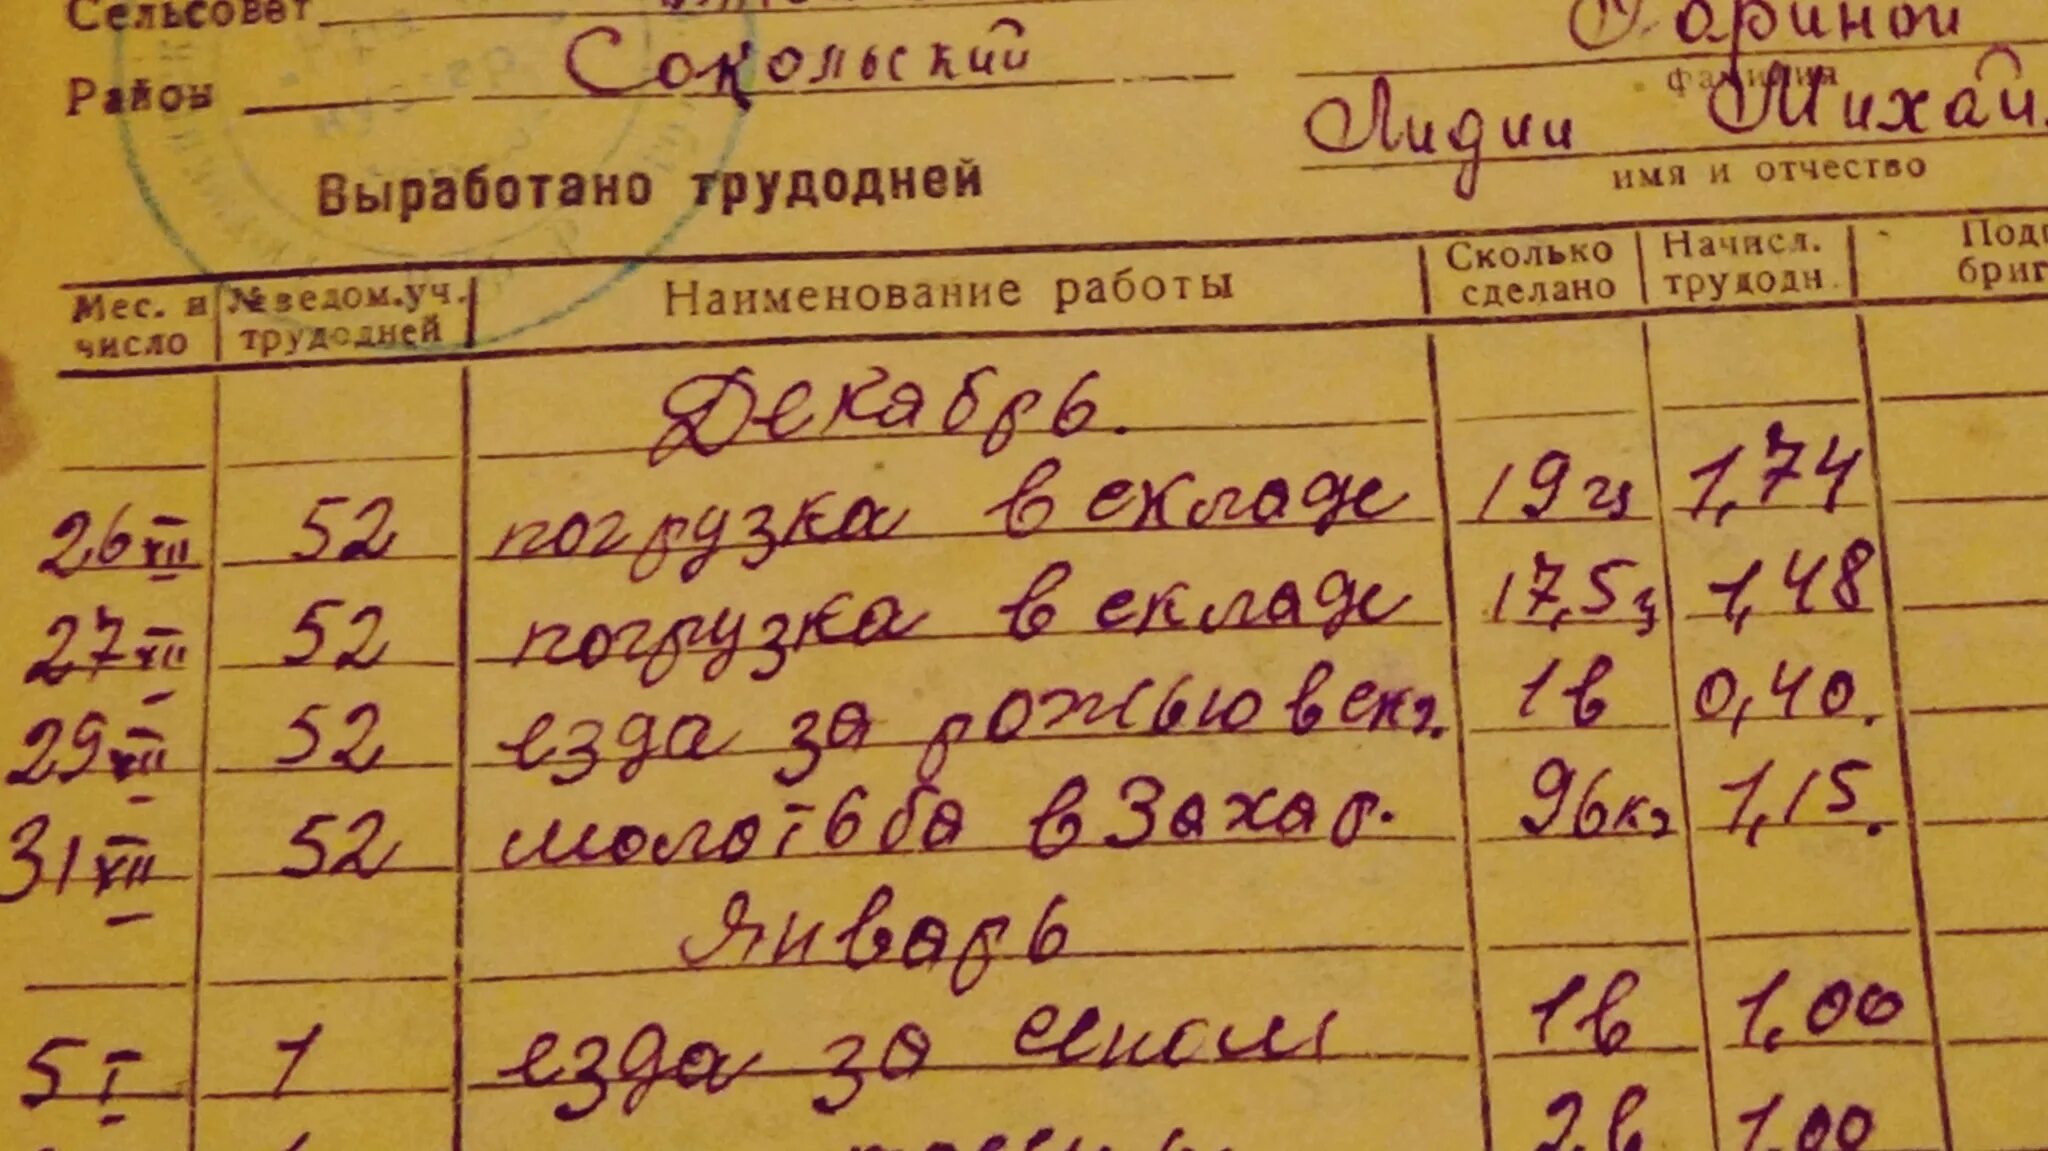 Сельсовет
Район Сокольский
фамилия
Лидии Михай
имя и отчество
Выработано трудодней
Мес. и число № ведом. уч. трудодней Наименование работы Сколько сделано Начисл. трудодн.
Декабрь.
26 XII 52 погрузка в складе 19 ц 1,74
27 XII 52 погрузка в складе 17,5 ц 1,48
29 XII 52 езда за рожью в скл. 1 в 0,40.
31 XII 52 молотьба в Захар. 96 кг 1,15.
Январь
5 I 1 езда за сеном 1 в 1,00
2 в 1,00